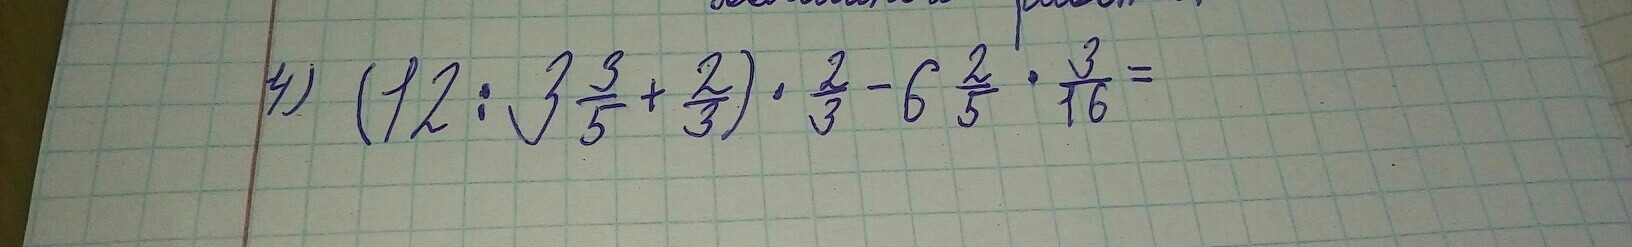 4) (12 : 3 3/5 + 2/3) · 2/3 - 6 2/5 · 3/16 =